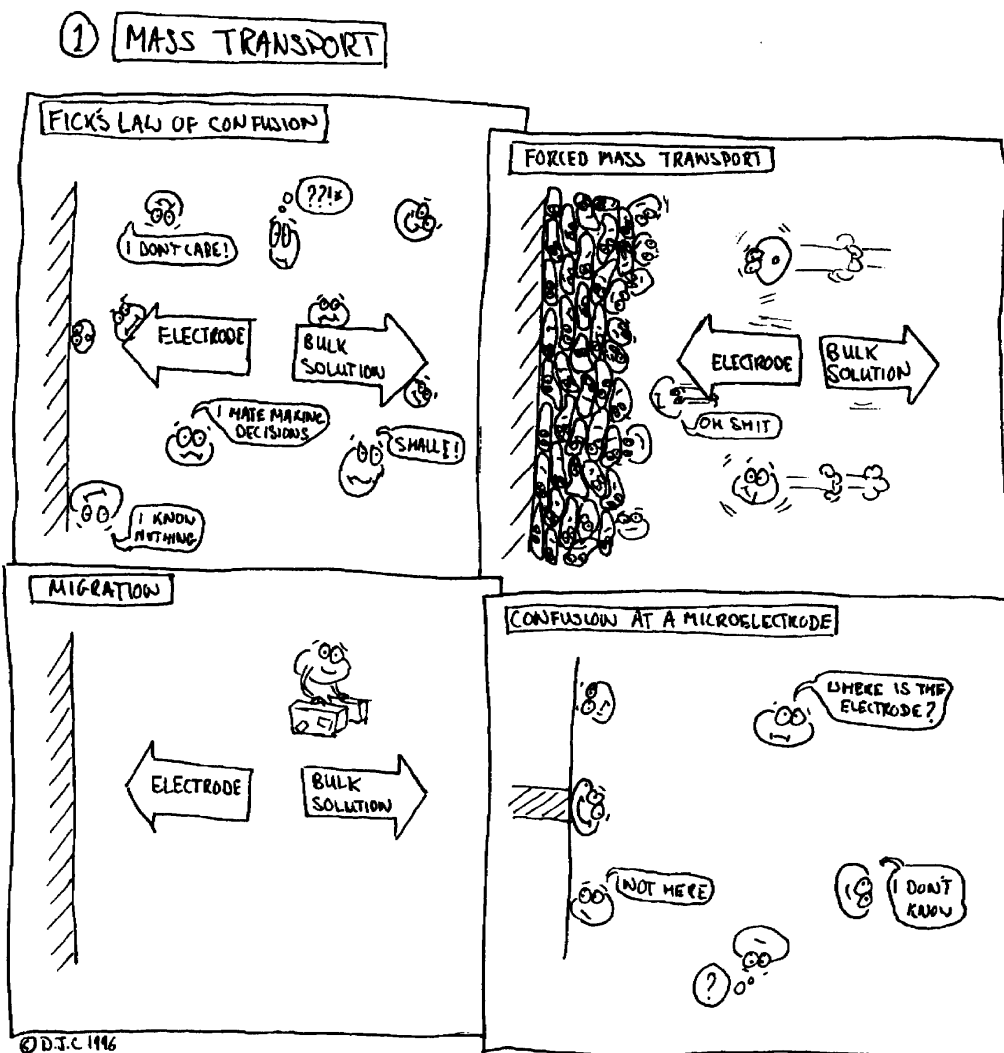 1 MASS TRANSPORT
FICK'S LAW OF CONFUSION
??!*
I DON'T CARE!
ELECTRODE
BULK
SOLUTION
I HATE MAKING
DECISIONS
SMALL E!
I KNOW
NOTHING
FORCED MASS TRANSPORT
ELECTRODE
BULK
SOLUTION
OH SHIT
MIGRATION
ELECTRODE
BULK
SOLUTION
CONFUSION AT A MICROELECTRODE
WHERE IS THE
ELECTRODE?
NOT HERE
I DON'T
KNOW
?
© D.J.C 1996